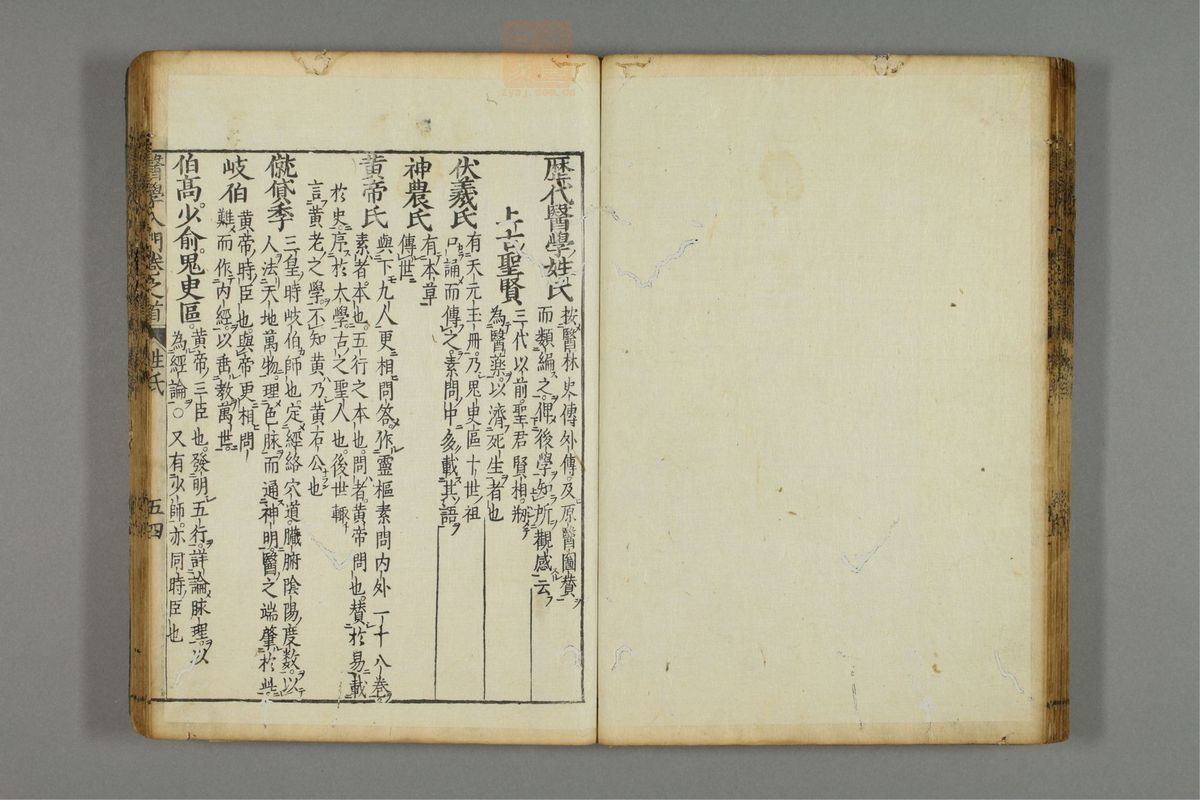 歷代醫學姓氏
按醫林史傳外傳及原醫圖贊
而類編之俾後學知所觀感云
上古聖賢
三代以前聖君賢相剏
為醫藥以濟死生者也
伏羲氏
有天元玉冊乃鬼史區十世祖
口誦而傳之素問中多載其語
神農氏
有本草
傳世
黃帝氏
與下九人更相問答作靈樞素問內外一十八卷
素者本也五行之本也問者黃帝問也贊於易載
於史序於太學古之聖人也後世輙
言黃老之學不知黃乃黃石公也
僦貸季
三皇時岐伯師也定經絡穴道臟腑陰陽度數以
人法天地萬物理色脉而通神明醫之端肇於此
岐伯
黃帝時臣也與帝更相問
難而作內經以垂教萬世
伯高少俞鬼史區
黃帝三臣也發明五行詳論脉理以
為經論○又有少師亦同時臣也
醫學入門卷之首 姓氏 五四
zysj.com.cn